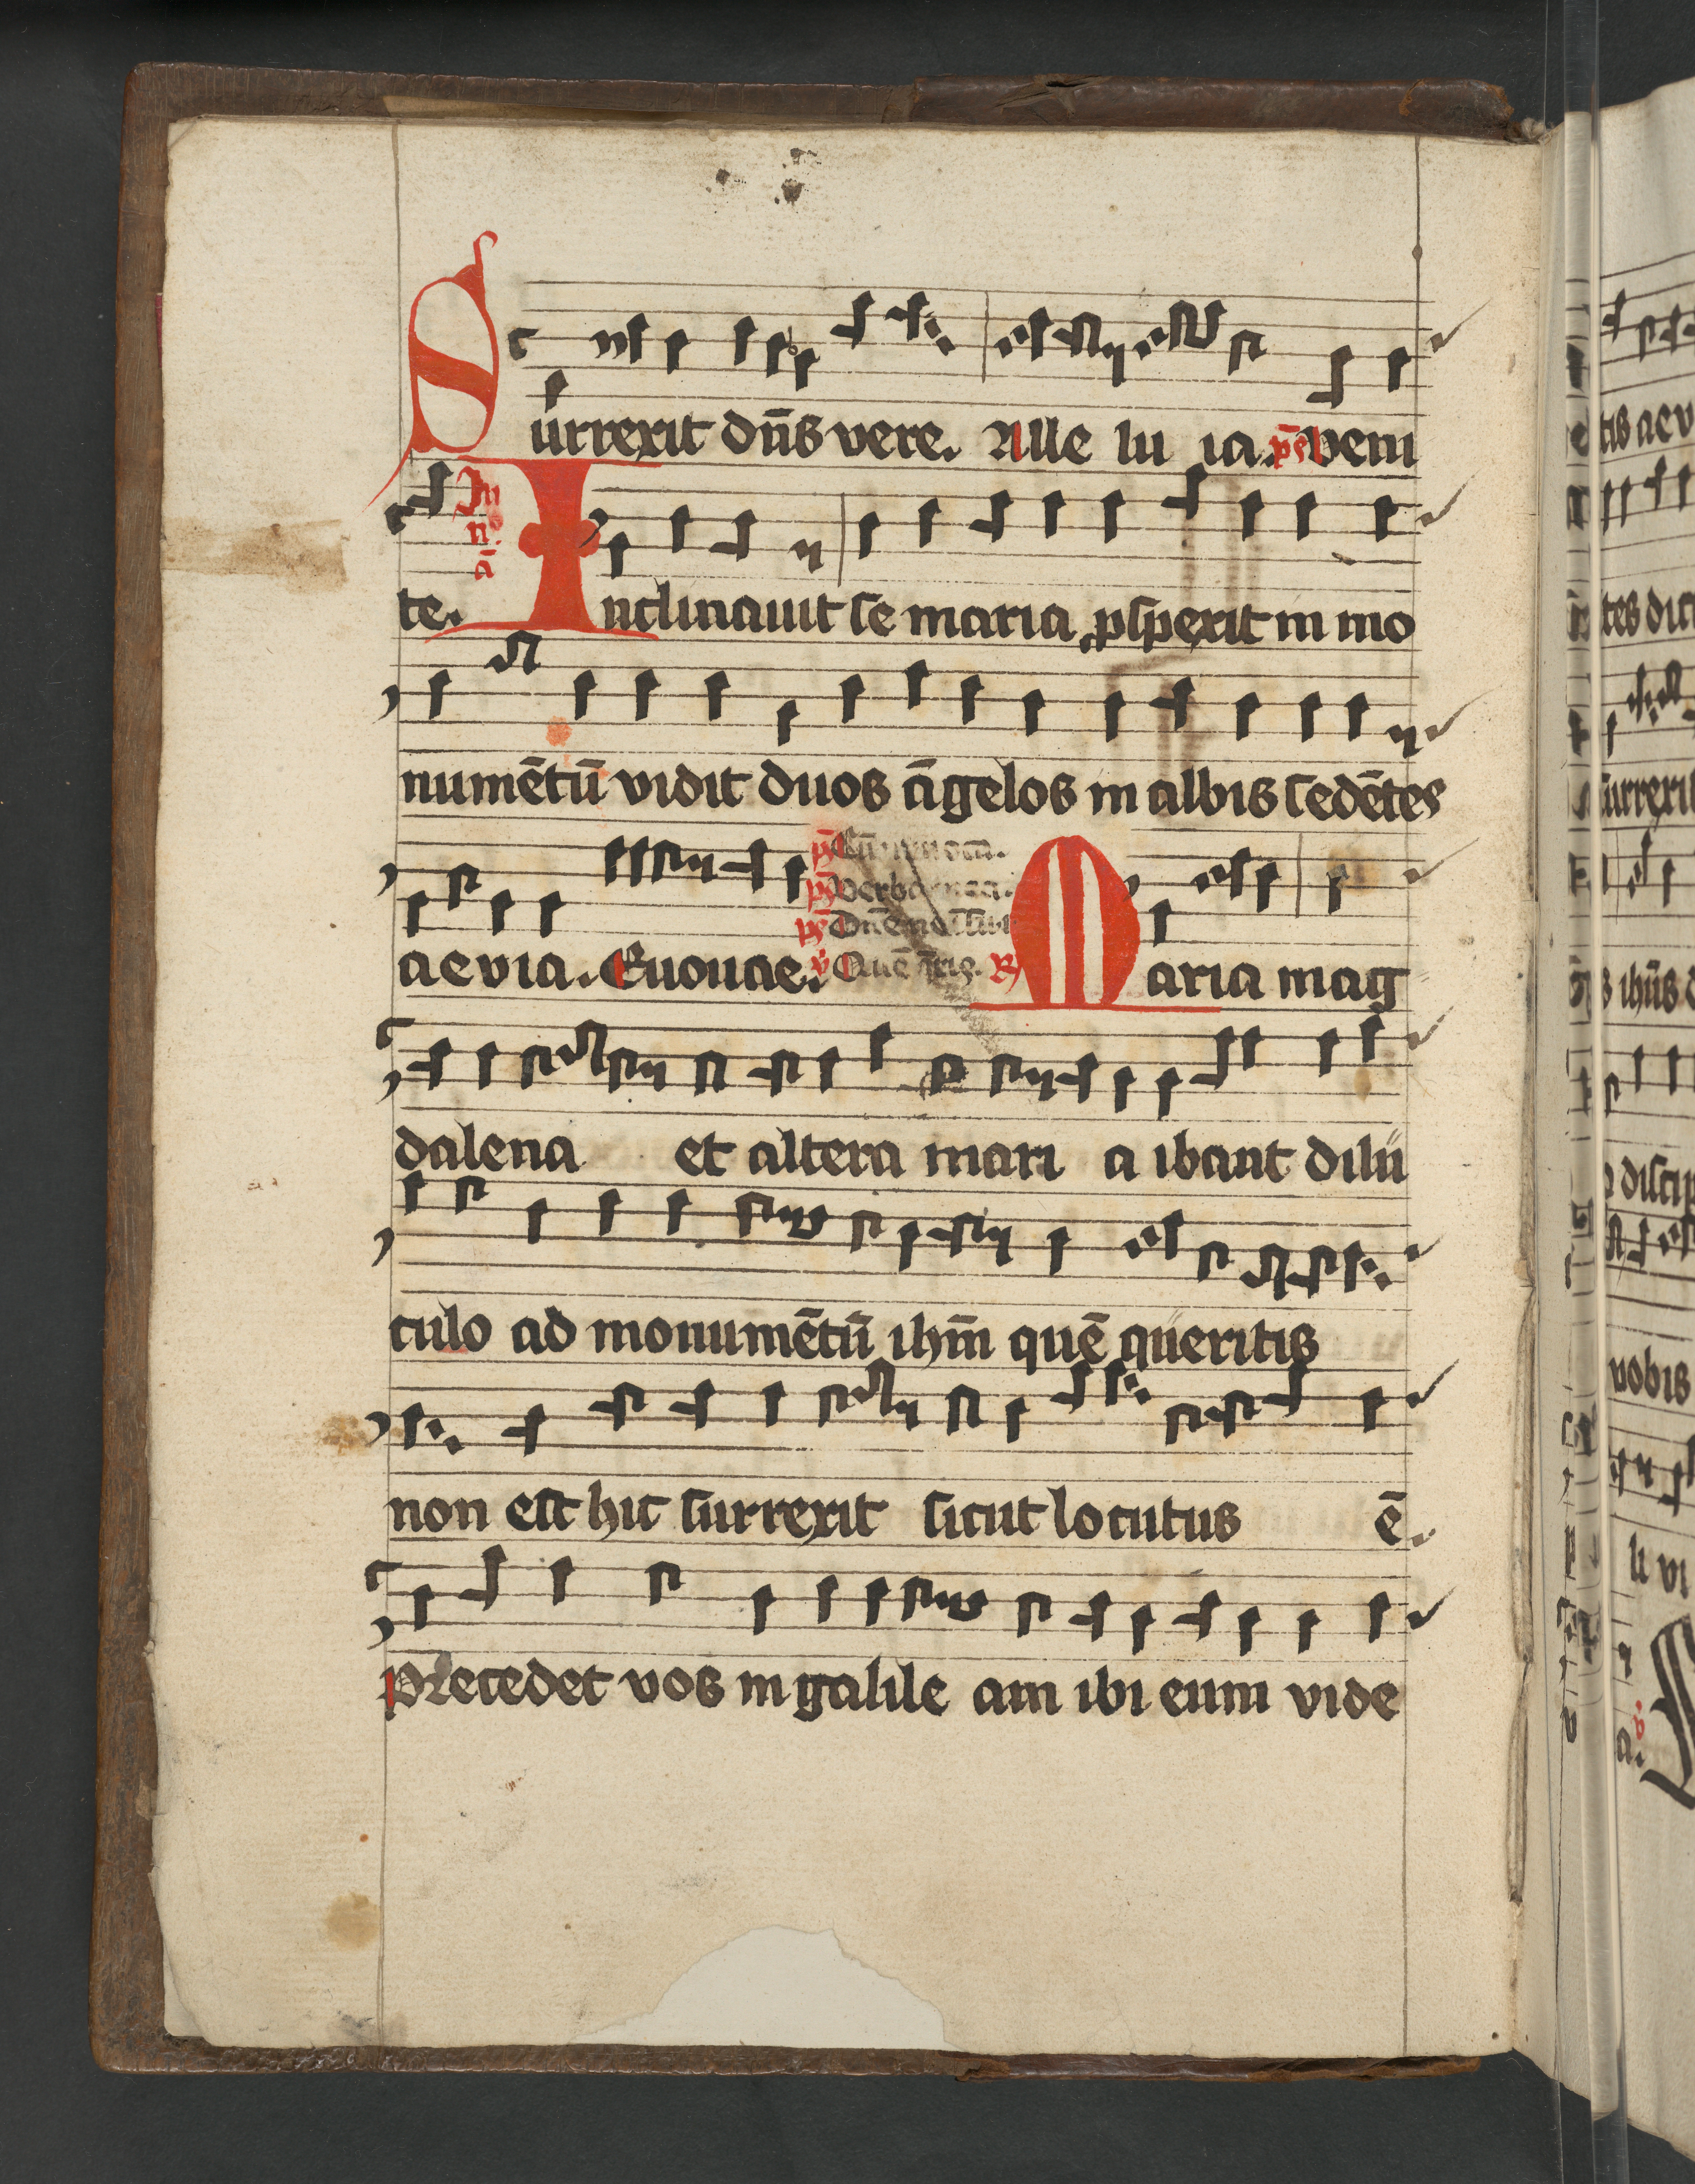 Surrexit dn̄s vere. Alle lu ia. ps̄ Veni
te. In n. ā Inclinauit se maria ꝓspexit in mo
numētū vidit duos āgelos in albis sedētes
aevia. Euouae. ℟ Maria mag
dalena et altera mari a ibant dilu
culo ad monumētū ihm̄ quē queritis
non est hic surrexit sicut locutus ē.
Precedet vos in galile am ibi eum vide